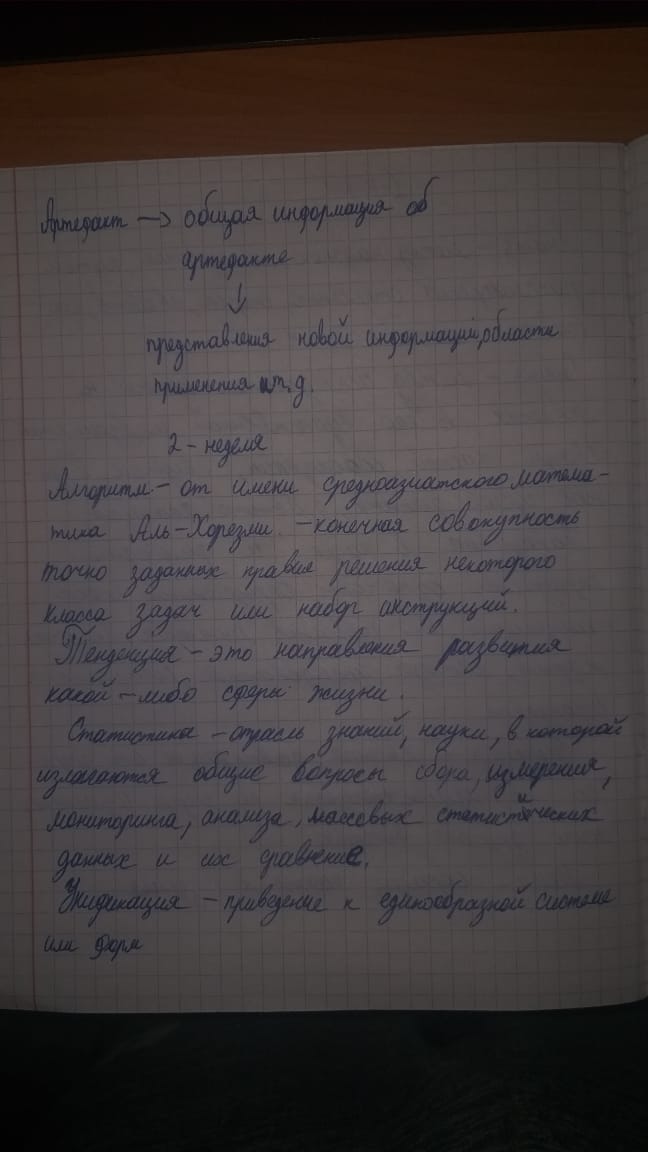 Артефакт → общая информация об
артефакте
↓
представления новой информаций, области
применения и т. д.
2 - неделя
Алгоритм – от имени среднеазиатского матема-
тика Аль-Хорезми – конечная совокупность
точно заданных правил решения некоторого
класса задач или набор инструкций.
Тенденция – это направления развития
какой – либо сферы жизни.
Статистика – отрасль знаний, науки, в которой
излагаются общие вопросы сбора, измерения,
мониторинга, анализа, массовых статистических
данных и их сравнение.
Унификация – приведение к единообразной системе
или форм